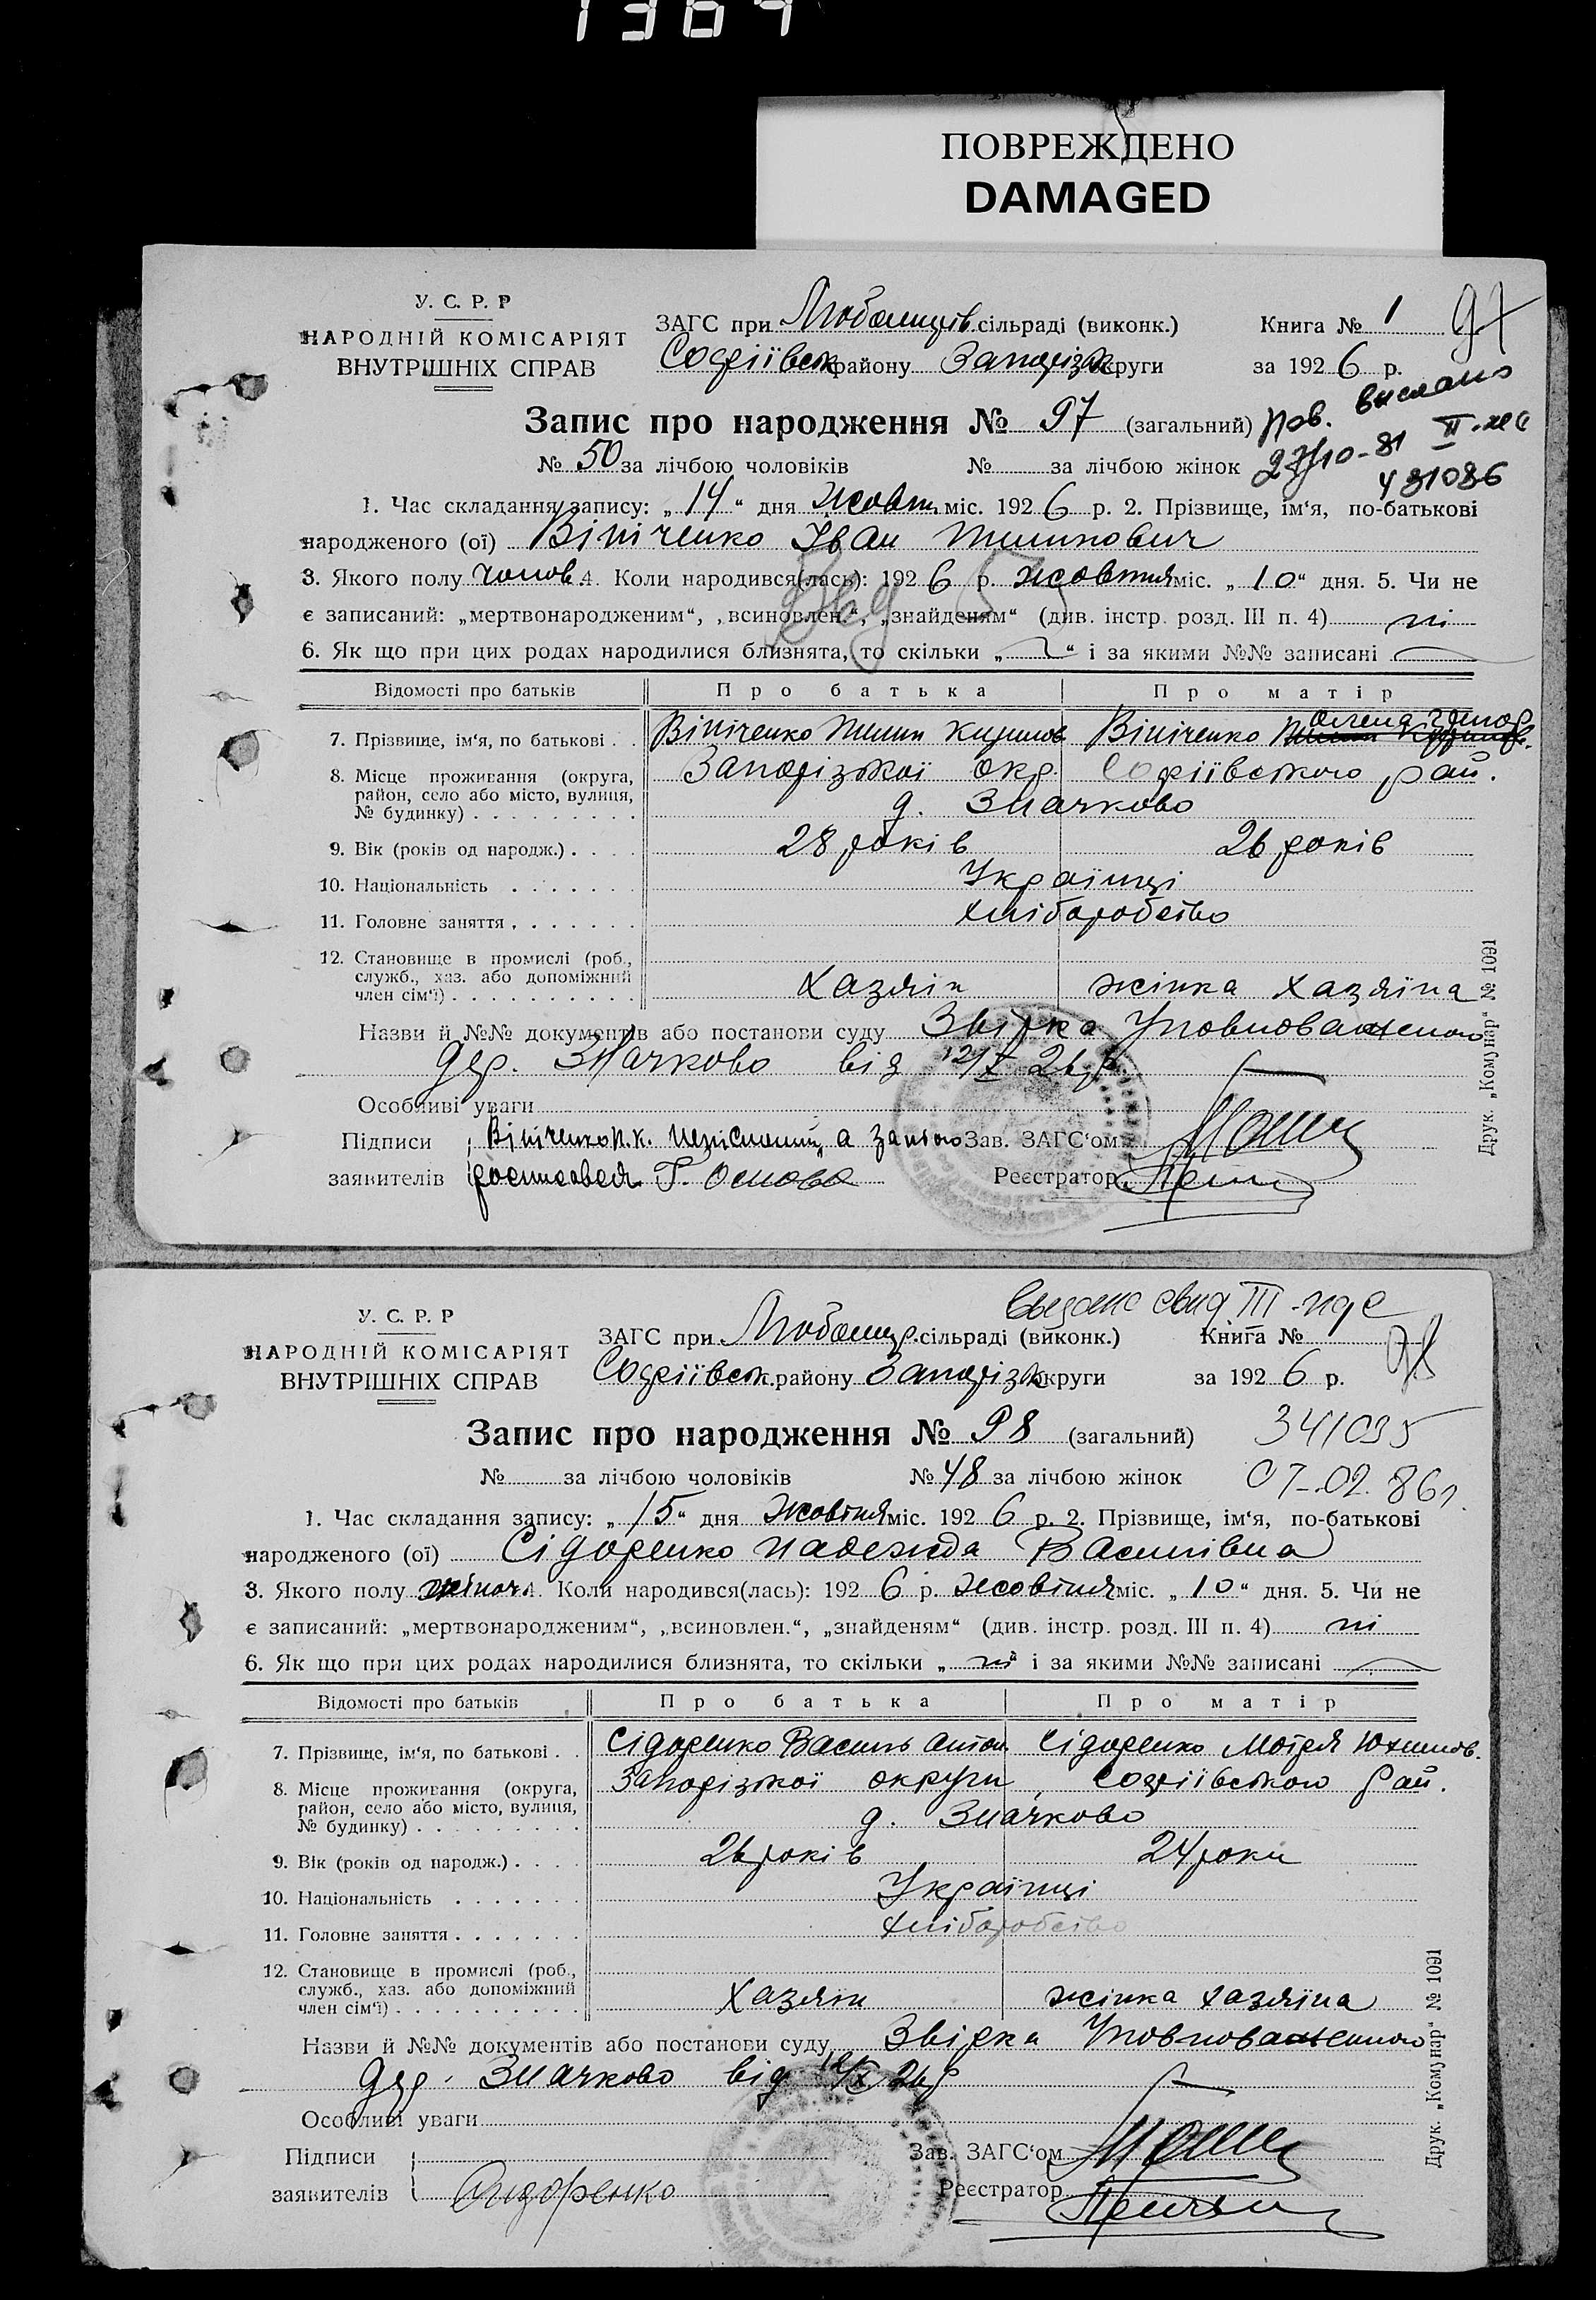 1364
ПОВРЕЖДЕНО
DAMAGED
У. С. Р. Р
НАРОДНІЙ КОМІСАРІЯТ
ВНУТРІШНІХ СПРАВ
ЗАГС при сільраді (виконк.) Книга № 1 97
Софіївськ району Запорізьк округи за 1926 р.
Запис про народження № 97 (загальний) Пов. выслано
№ 50 за лічбою чоловіків № за лічбою жінок 27/10-81
431086
1. Час складання запису: „14“ дня Жовтн. міс. 1926 р. 2. Прізвище, ім‘я, по-батькові
народженого (ої) Вініченко Іван
3. Якого полу чолов. 4. Коли народився(лась): 1926 р. жовтня міс. „10“ дня. 5. Чи не
є записаний: „мертвонародженим“, „всиновлен.“, „знайденям“ (див. інстр. розд. III п. 4) ні
6. Як що при цих родах народилися близнята, то скільки „ “ і за якими №№ записані
Відомості про батьків Про батька Про матір
7. Прізвище, ім‘я, по батькові . . Вініченко Вініченко Олена
8. Місце проживання (округа, Запорізької окр. Софіївського рай.
район, село або місто, вулиця, д. Значково
№ будинку) . . . . . . . . .
9. Вік (років од народж.) . . . . 28 років 26 років
10. Національність . . . . . . . Українці
11. Головне заняття . . . . . . . хліборобство
12. Становище в промислі (роб.,
служб., хаз. або допоміжний хазяїн жінка хазяїна
член сім‘ї) . . . . . . . . . .
Назви й №№ документів або постанови суду Звірка Уповноваженого
дер. Значково від 12/X 26 р
Особливі уваги
Підписи Вініченко П.К. а за нього Зав. ЗАГС‘ом
заявителів росписався Г. Основа Реєстратор
Друк. „Комунар“ № 1091
Выдано свид III-
У. С. Р. Р
НАРОДНІЙ КОМІСАРІЯТ
ВНУТРІШНІХ СПРАВ
ЗАГС при сільраді (виконк.) Книга № 98
Софіївськ. району Запорізьк округи за 1926 р.
Запис про народження № 98 (загальний) 341035
№ за лічбою чоловіків № 48 за лічбою жінок 07-02.86г.
1. Час складання запису: „15“ дня Жовтня міс. 1926 р. 2. Прізвище, ім‘я, по-батькові
народженого (ої) Сідоренко Надежда Василівна
3. Якого полу жіноч. 4. Коли народився(лась): 1926 р. Жовтня міс. „10“ дня. 5. Чи не
є записаний: „мертвонародженим“, „всиновлен.“, „знайденям“ (див. інстр. розд. III п. 4) ні
6. Як що при цих родах народилися близнята, то скільки „ні“ і за якими №№ записані
Відомості про батьків Про батька Про матір
7. Прізвище, ім‘я, по батькові . . Сідоренко Василь Антон Сідоренко Мотря Юхимов.
8. Місце проживання (округа, Запорізької округи Софіївського рай.
район, село або місто, вулиця, д. Значково
№ будинку) . . . . . . . . .
9. Вік (років од народж.) . . . . 26 років 24 роки
10. Національність . . . . . . . Українці
11. Головне заняття . . . . . . . хліборобство
12. Становище в промислі (роб.,
служб., хаз. або допоміжний хазяїн жінка хазяїна
член сім‘ї) . . . . . . . . . .
Назви й №№ документів або постанови суду Звірка Уповноваженого
дер. Значково від 12/X 26 р
Особливі уваги
Підписи Зав. ЗАГС‘ом
заявителів Сидоренко Реєстратор
Друк. „Комунар“ № 1091